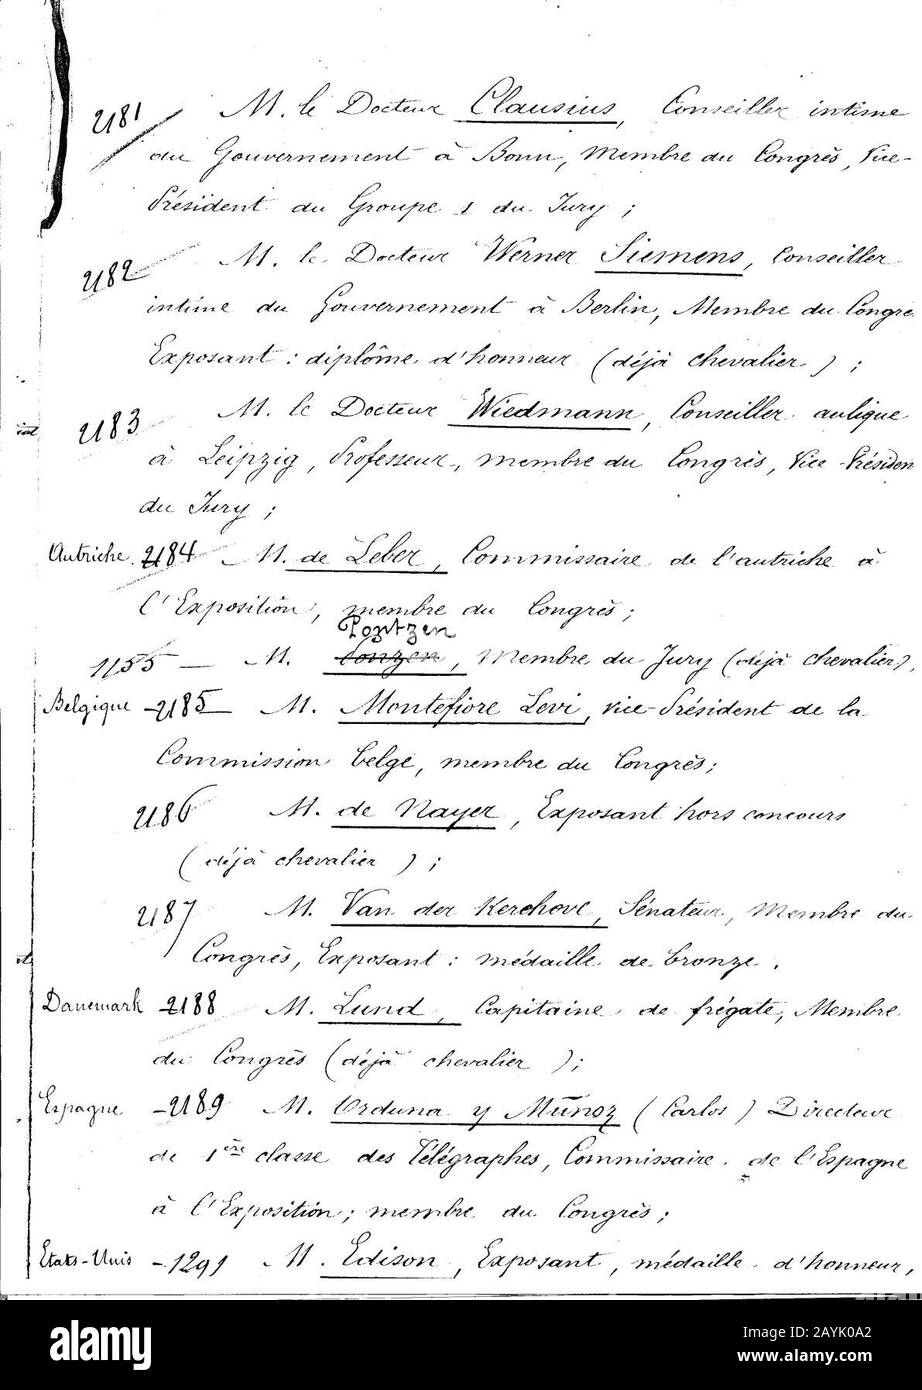 2181 M. le Docteur Clausius, Conseiller intime
du Gouvernement à Bonn, Membre du Congrès, Vice-
Président du Groupe 1 du Jury ;
2182 M. le Docteur Werner Siemens, Conseiller
intime du Gouvernement à Berlin, Membre du Congre
Exposant : diplôme d'honneur (déjà chevalier) ;
2183 M. le Docteur Wiedmann, Conseiller aulique
à Leipzig, Professeur, membre du Congrès, Vice-Présiden
du Jury ;
Autriche 2184 M. de Leber, Commissaire de l'autriche à
l'Exposition, membre du Congrès ;
Pontzen
1155 — M. Conzen, Membre du Jury (déjà chevalier),
Belgique - 2185 — M. Montefiore Levi, vice-Président de la
Commission belge, membre du Congrès ;
2186 M. de Nayer, Exposant hors concours
(déjà chevalier) ;
2187 M. Van der Kerchove, Sénateur, Membre du
Congrès, Exposant : médaille de bronze.
Danemark - 2188 M. Lund, Capitaine de frégate, Membre
du Congrès (déjà chevalier) ;
Espagne - 2189 M. Orduna y Muñoz (Carlos) Directeur
de 1ère classe des Télégraphes, Commissaire de l'Espagne
à l'Exposition ; membre du Congrès ;
Etats-Unis - 1291 M. Edison, Exposant, médaille d'honneur,
alamy
Image ID: 2AYK0A2
www.alamy.com